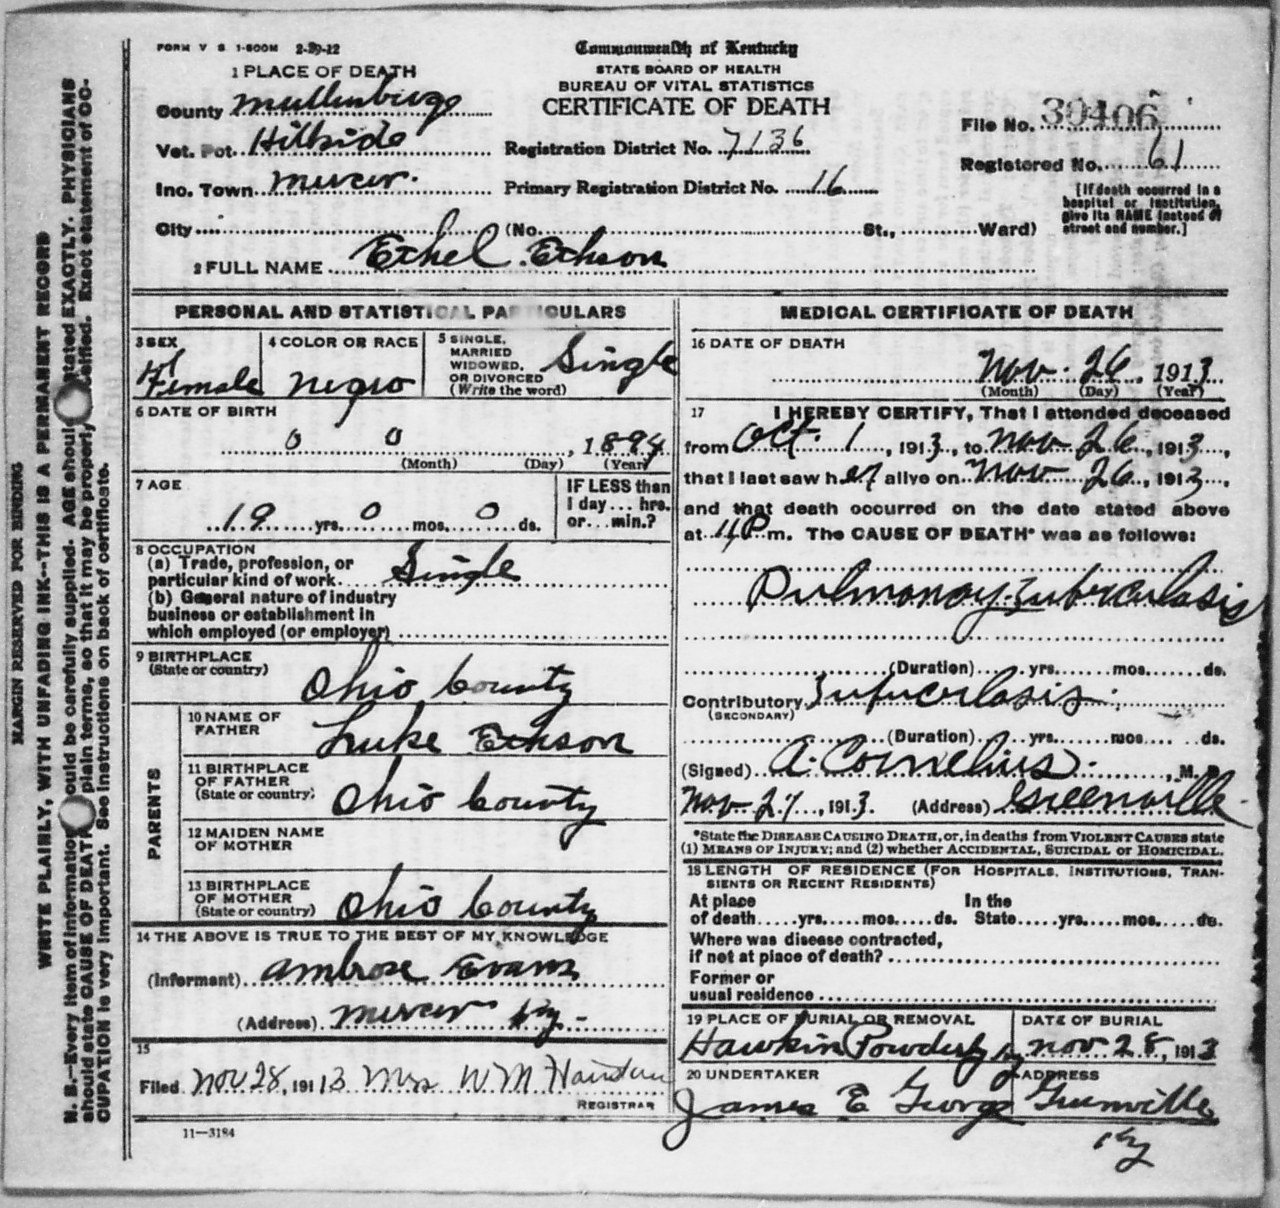 FORM V S 1-500M 2-29-12
Commonwealth of Kentucky
STATE BOARD OF HEALTH
BUREAU OF VITAL STATISTICS
CERTIFICATE OF DEATH
1 PLACE OF DEATH
County Muhlenburg
Vot. Pct. Hillside
Inc. Town Mercer.
City (No. St., Ward)
Registration District No. 7136
Primary Registration District No. 16
File No. 30406
Registered No. 61
[If death occurred in a
hospital or institution,
give its NAME instead of
street and number.]
2 FULL NAME Ethel Echson
PERSONAL AND STATISTICAL PARTICULARS
3 SEX
Female
4 COLOR OR RACE
negro
5 SINGLE,
MARRIED
WIDOWED,
OR DIVORCED
(Write the word)
Single
6 DATE OF BIRTH
0 0, 1894
(Month) (Day) (Year)
7 AGE
19 yrs. 0 mos. 0 ds.
IF LESS than
1 day... hrs.
or... min.?
8 OCCUPATION
(a) Trade, profession, or
particular kind of work Single
(b) General nature of industry
business or establishment in
which employed (or employer)
9 BIRTHPLACE
(State or country)
Ohio County
PARENTS
10 NAME OF
FATHER
Luke Echson
11 BIRTHPLACE
OF FATHER
(State or country)
Ohio County
12 MAIDEN NAME
OF MOTHER
13 BIRTHPLACE
OF MOTHER
(State or country)
Ohio County
14 THE ABOVE IS TRUE TO THE BEST OF MY KNOWLEDGE
(Informant) Ambrose Evans
(Address) Mercer Ky -
15
Filed Nov 28, 1913 Mrs W M
REGISTRAR
11-3184
MEDICAL CERTIFICATE OF DEATH
16 DATE OF DEATH
Nov. 26, 1913
(Month) (Day) (Year)
17 I HEREBY CERTIFY, That I attended deceased
from Oct. 1, 1913, to Nov 26, 1913,
that I last saw her alive on Nov 26, 1913,
and that death occurred on the date stated above
at P m. The CAUSE OF DEATH* was as follows:
Pulmonoy Tuberculasis
(Duration) yrs. mos. ds.
Contributory
(SECONDARY)
(Duration) yrs. mos. ds.
(Signed) A. Cornelius, M. D.
Nov-27, 1913. (Address) Greenville
*State the DISEASE CAUSING DEATH, or, in deaths from VIOLENT CAUSES state
(1) MEANS OF INJURY; and (2) whether ACCIDENTAL, SUICIDAL or HOMICIDAL.
18 LENGTH OF RESIDENCE (FOR HOSPITALS, INSTITUTIONS, TRAN-
SIENTS OR RECENT RESIDENTS)
At place In the
of death yrs. mos. ds. State yrs. mos. ds.
Where was disease contracted,
if not at place of death?
Former or
usual residence
19 PLACE OF BURIAL OR REMOVAL
Hawkin Powderly Ky
DATE OF BURIAL
Nov 28, 1913
20 UNDERTAKER
James E George
ADDRESS
Greenville
Ky
MARGIN RESERVED FOR BINDING
WRITE PLAINLY, WITH UNFADING INK--THIS IS A PERMANENT RECORD
N. B.--Every item of information should be carefully supplied. AGE should be stated EXACTLY. PHYSICIANS
should state CAUSE OF DEATH in plain terms, so that it may be properly classified. Exact statement of OC-
CUPATION is very important. See instructions on back of certificate.